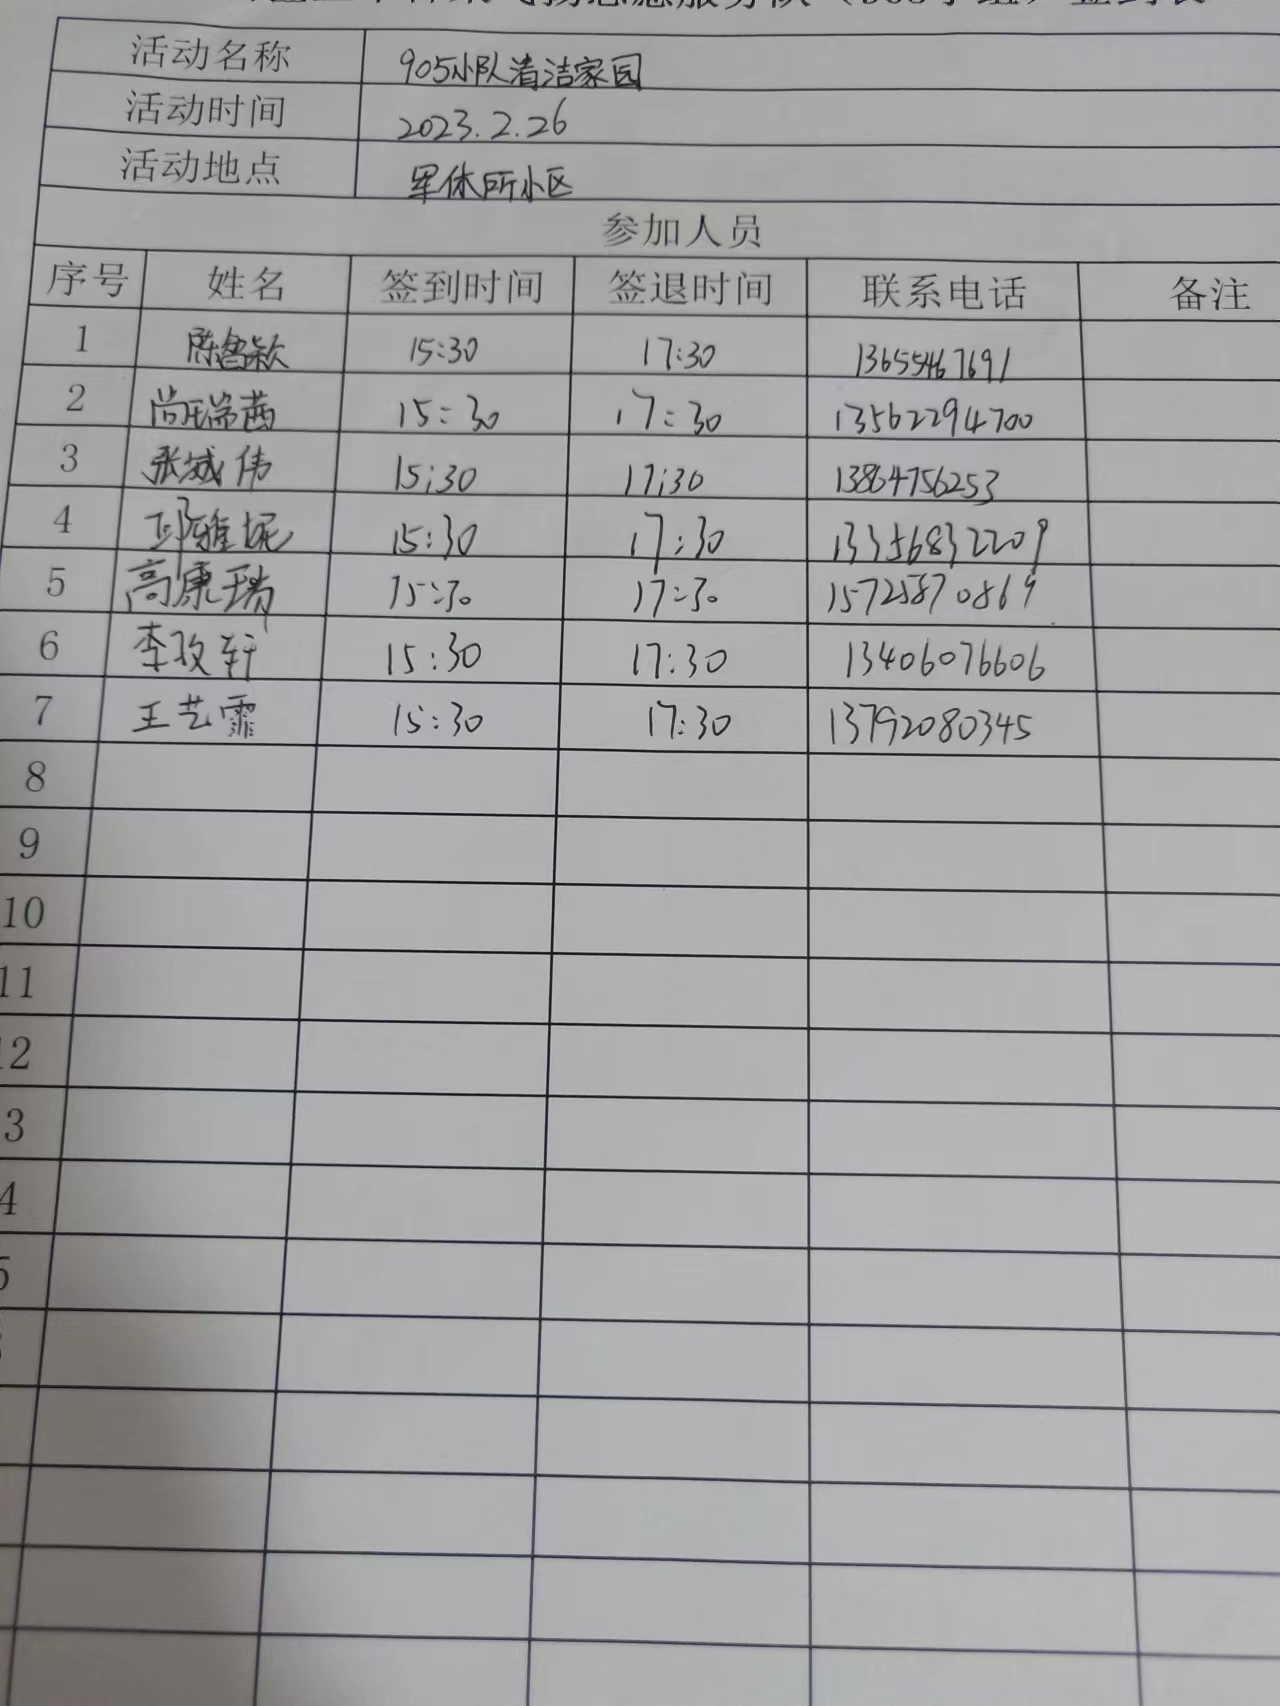 志愿服务队
活动名称 905小队清洁家园
活动时间 2023.2.26
活动地点 军休所小区
参加人员
序号 姓名 签到时间 签退时间 联系电话 备注
1 陈鲁颖 15:30 17:30 13655467691
2 尚瑞茜 15:30 17:30 13562294700
3 张斌伟 15:30 17:30 13864756253
4 邱雅妮 15:30 17:30 13356832209
5 高康瑞 15:30 17:30 15725870869
6 李孜轩 15:30 17:30 13406076606
7 王艺霏 15:30 17:30 13792080345
8
9
10
11
12
3
4
5